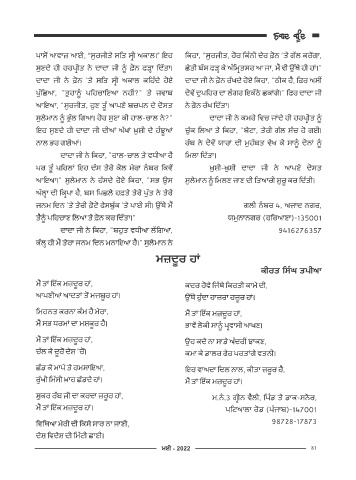 ਨਿਰਾਲ ਕ੍ਰੰਦ
ਪਾਸੋਂ ਆਵਾਜ਼ ਆਈ, "ਸੁਰਜੀਤੇ ਸਤਿ ਸ੍ਰੀ ਅਕਾਲ।" ਇਹ
ਸੁਣਦੇ ਹੀ ਹਰਪ੍ਰੀਤ ਨੇ ਦਾਦਾ ਜੀ ਨੂੰ ਫ਼ੋਨ ਫੜ੍ਹਾ ਦਿੱਤਾ।
ਦਾਦਾ ਜੀ ਨੇ ਫ਼ੋਨ 'ਤੇ ਸਤਿ ਸ੍ਰੀ ਅਕਾਲ ਕਹਿੰਦੇ ਹੋਏ
ਪੁੱਛਿਆ, "ਤੁਹਾਨੂੰ ਪਹਿਚਾਇਆ ਨਹੀਂ?" ਤੇ ਜਵਾਬ
ਆਇਆ, "ਸੁਰਜੀਤ, ਹੁਣ ਤੂੰ ਆਪਣੇ ਬਚਪਨ ਦੇ ਦੋਸਤ
ਸੁਲੇਮਾਨ ਨੂੰ ਭੁੱਲ ਗਿਆ। ਹੋਰ ਸੁਣਾ ਕੀ ਹਾਲ-ਚਾਲ ਨੇ?"
ਇਹ ਸੁਣਦੇ ਹੀ ਦਾਦਾ ਜੀ ਦੀਆਂ ਅੱਖਾਂ ਖੁਸ਼ੀ ਦੇ ਹੰਝੂਆਂ
ਨਾਲ ਭਰ ਗਈਆਂ।
ਦਾਦਾ ਜੀ ਨੇ ਕਿਹਾ, "ਹਾਲ-ਚਾਲ ਤੇ ਵਧੀਆ ਹੈ
ਪਰ ਤੂੰ ਪਹਿਲਾਂ ਇਹ ਦੱਸ ਤੇਰੇ ਕੋਲ ਮੇਰਾ ਨੰਬਰ ਕਿਵੇਂ
ਆਇਆ।" ਸੁਲੇਮਾਨ ਨੇ ਹੱਸਦੇ ਹੋਏ ਕਿਹਾ, "ਸਭ ਉਸ
ਅੱਲ੍ਹਾ ਦੀ ਕ੍ਰਿਪਾ ਹੈ, ਬਸ ਪਿਛਲੇ ਹਫ਼ਤੇ ਤੇਰੇ ਪੁੱਤ ਨੇ ਤੇਰੇ
ਜਨਮ ਦਿਨ 'ਤੇ ਤੇਰੀ ਫ਼ੋਟੋ ਫੇਸਬੁੱਕ 'ਤੇ ਪਾਈ ਸੀ। ਉੱਥੋਂ ਮੈਂ
ਤੈਨੂੰ ਪਹਿਚਾਣ ਲਿਆ ਤੇ ਫ਼ੋਨ ਕਰ ਦਿੱਤਾ।"
ਦਾਦਾ ਜੀ ਨੇ ਕਿਹਾ, "ਬਹੁਤ ਵਧੀਆ ਲੱਗਿਆ,
ਕੱਲ੍ਹ ਹੀ ਮੈਂ ਤੇਰਾ ਜਨਮ ਦਿਨ ਮਨਾਇਆ ਹੈ।" ਸੁਲੇਮਾਨ ਨੇ
ਕਿਹਾ, "ਸੁਰਜੀਤ, ਹੋਰ ਕਿੰਨੀ ਦੇਰ ਫ਼ੋਨ 'ਤੇ ਗੱਲ ਕਰੇਂਗਾ,
ਛੇਤੀ ਬੱਸ ਫੜ੍ਹ ਕੇ ਅੰਮ੍ਰਿਤਸਰ ਆ ਜਾ, ਮੈਂ ਵੀ ਉੱਥੇ ਹੀ ਹਾਂ।"
ਦਾਦਾ ਜੀ ਨੇ ਫ਼ੋਨ ਰੱਖਦੇ ਹੋਏ ਕਿਹਾ, "ਠੀਕ ਹੈ, ਫਿਰ ਅਸੀਂ
ਦੋਵੇਂ ਦੁਪਹਿਰ ਦਾ ਲੰਗਰ ਇਕੱਠੇ ਛਕਾਂਗੇ।" ਫਿਰ ਦਾਦਾ ਜੀ
ਨੇ ਫ਼ੋਨ ਰੱਖ ਦਿੱਤਾ।
ਦਾਦਾ ਜੀ ਨੇ ਕਮਰੇ ਵਿਚ ਜਾਂਦੇ ਹੀ ਹਰਪ੍ਰੀਤ ਨੂੰ
ਚੁੱਕ ਲਿਆ ਤੇ ਕਿਹਾ, "ਬੇਟਾ, ਤੇਰੀ ਗੱਲ ਸੱਚ ਹੋ ਗਈ।
ਰੱਬ ਨੇ ਦੋਵੇਂ ਯਾਰਾਂ ਦੀ ਮੁਹੱਬਤ ਵੇਖ ਕੇ ਸਾਨੂੰ ਦੋਨਾਂ ਨੂੰ
ਮਿਲਾ ਦਿੱਤਾ।
ਖੁਸ਼ੀ-ਖੁਸ਼ੀ ਦਾਦਾ ਜੀ ਨੇ ਆਪਣੇ ਦੋਸਤ
ਸੁਲੇਮਾਨ ਨੂੰ ਮਿਲਣ ਜਾਣ ਦੀ ਤਿਆਰੀ ਸ਼ੁਰੂ ਕਰ ਦਿੱਤੀ।
ਗਲੀ ਨੰਬਰ 4, ਅਜ਼ਾਦ ਨਗਰ,
ਯਮੁਨਾਨਗਰ (ਹਰਿਆਣਾ)-135001
9416276357
ਮਜ਼ਦੂਰ ਹਾਂ
ਕੀਰਤ ਸਿੰਘ ਤਪੀਆ
ਮੈਂ ਤਾਂ ਇੱਕ ਮਜ਼ਦੂਰ ਹਾਂ,
ਆਪਣੀਆਂ ਆਦਤਾਂ ਤੋਂ ਮਜਬੂਰ ਹਾਂ।
ਮਿਹਨਤ ਕਰਨਾ ਕੰਮ ਹੈ ਮੇਰਾ,
ਮੈਂ ਸਭ ਧਰਮਾਂ ਦਾ ਮਸ਼ਕੂਰ ਹੈ।
ਮੈਂ ਤਾਂ ਇੱਕ ਮਜ਼ਦੂਰ ਹਾਂ,
ਚੱਲ ਕੇ ਦੂਰੋਂ ਦੇਸ਼ 'ਚੋਂ।
ਛੱਡ ਕੇ ਮਾਪੇ ਤੇ ਹਮਸਾਇਆ,
ਰੁੱਖੀ ਮਿੱਸੀ ਖਾਹ ਛੱਡਦੇ ਹਾਂ।
ਸ਼ੁਕਰ ਰੱਬ ਜੀ ਦਾ ਕਰਦਾ ਜ਼ਰੂਰ ਹਾਂ,
ਮੈਂ ਤਾਂ ਇੱਕ ਮਜ਼ਦੂਰ ਹਾਂ।
ਵਿਥਿਆ ਮੇਰੀ ਦੀ ਕਿਸੇ ਸਾਰ ਨਾ ਜਾਣੀ,
ਦੇਸ਼ ਵਿਦੇਸ਼ ਦੀ ਮਿੱਟੀ ਛਾਣੀ।
ਕਦਰ ਹੋਵੇ ਜਿੱਥੇ ਕਿਰਤੀ ਕਾਮੇ ਦੀ,
ਉੱਥੇ ਹੁੰਦਾ ਹਾਜ਼ਰਾ ਹਜ਼ੂਰ ਹਾਂ।
ਮੈਂ ਤਾਂ ਇੱਕ ਮਜ਼ਦੂਰ ਹਾਂ,
ਭਾਵੇਂ ਲੋਕੀ ਸਾਨੂੰ ਪ੍ਰਵਾਸੀ ਆਖਣ।
ਉਹ ਕਦੇ ਨਾ ਸਾਡੇ ਅੰਦਰੀਂ ਝਾਕਣ,
ਕਮਾ ਕੇ ਡਾਲਰ ਫੇਰ ਪਰਤਾਂਗੇ ਵਤਨੀਂ।
ਇਹ ਵਾਅਦਾ ਦਿਲ ਨਾਲ, ਕੀਤਾ ਜ਼ਰੂਰ ਹੈ,
ਮੈਂ ਤਾਂ ਇੱਕ ਮਜ਼ਦੂਰ ਹਾਂ।
ਮ.ਨੰ.3 ਗ੍ਰੀਨ ਵੈਲੀ, ਪਿੰਡ ਤੇ ਡਾਕ-ਸਨੌਰ,
ਪਟਿਆਲਾ ਰੋਡ (ਪੰਜਾਬ)-147001
98728-17873
ਮਈ - 2022
41